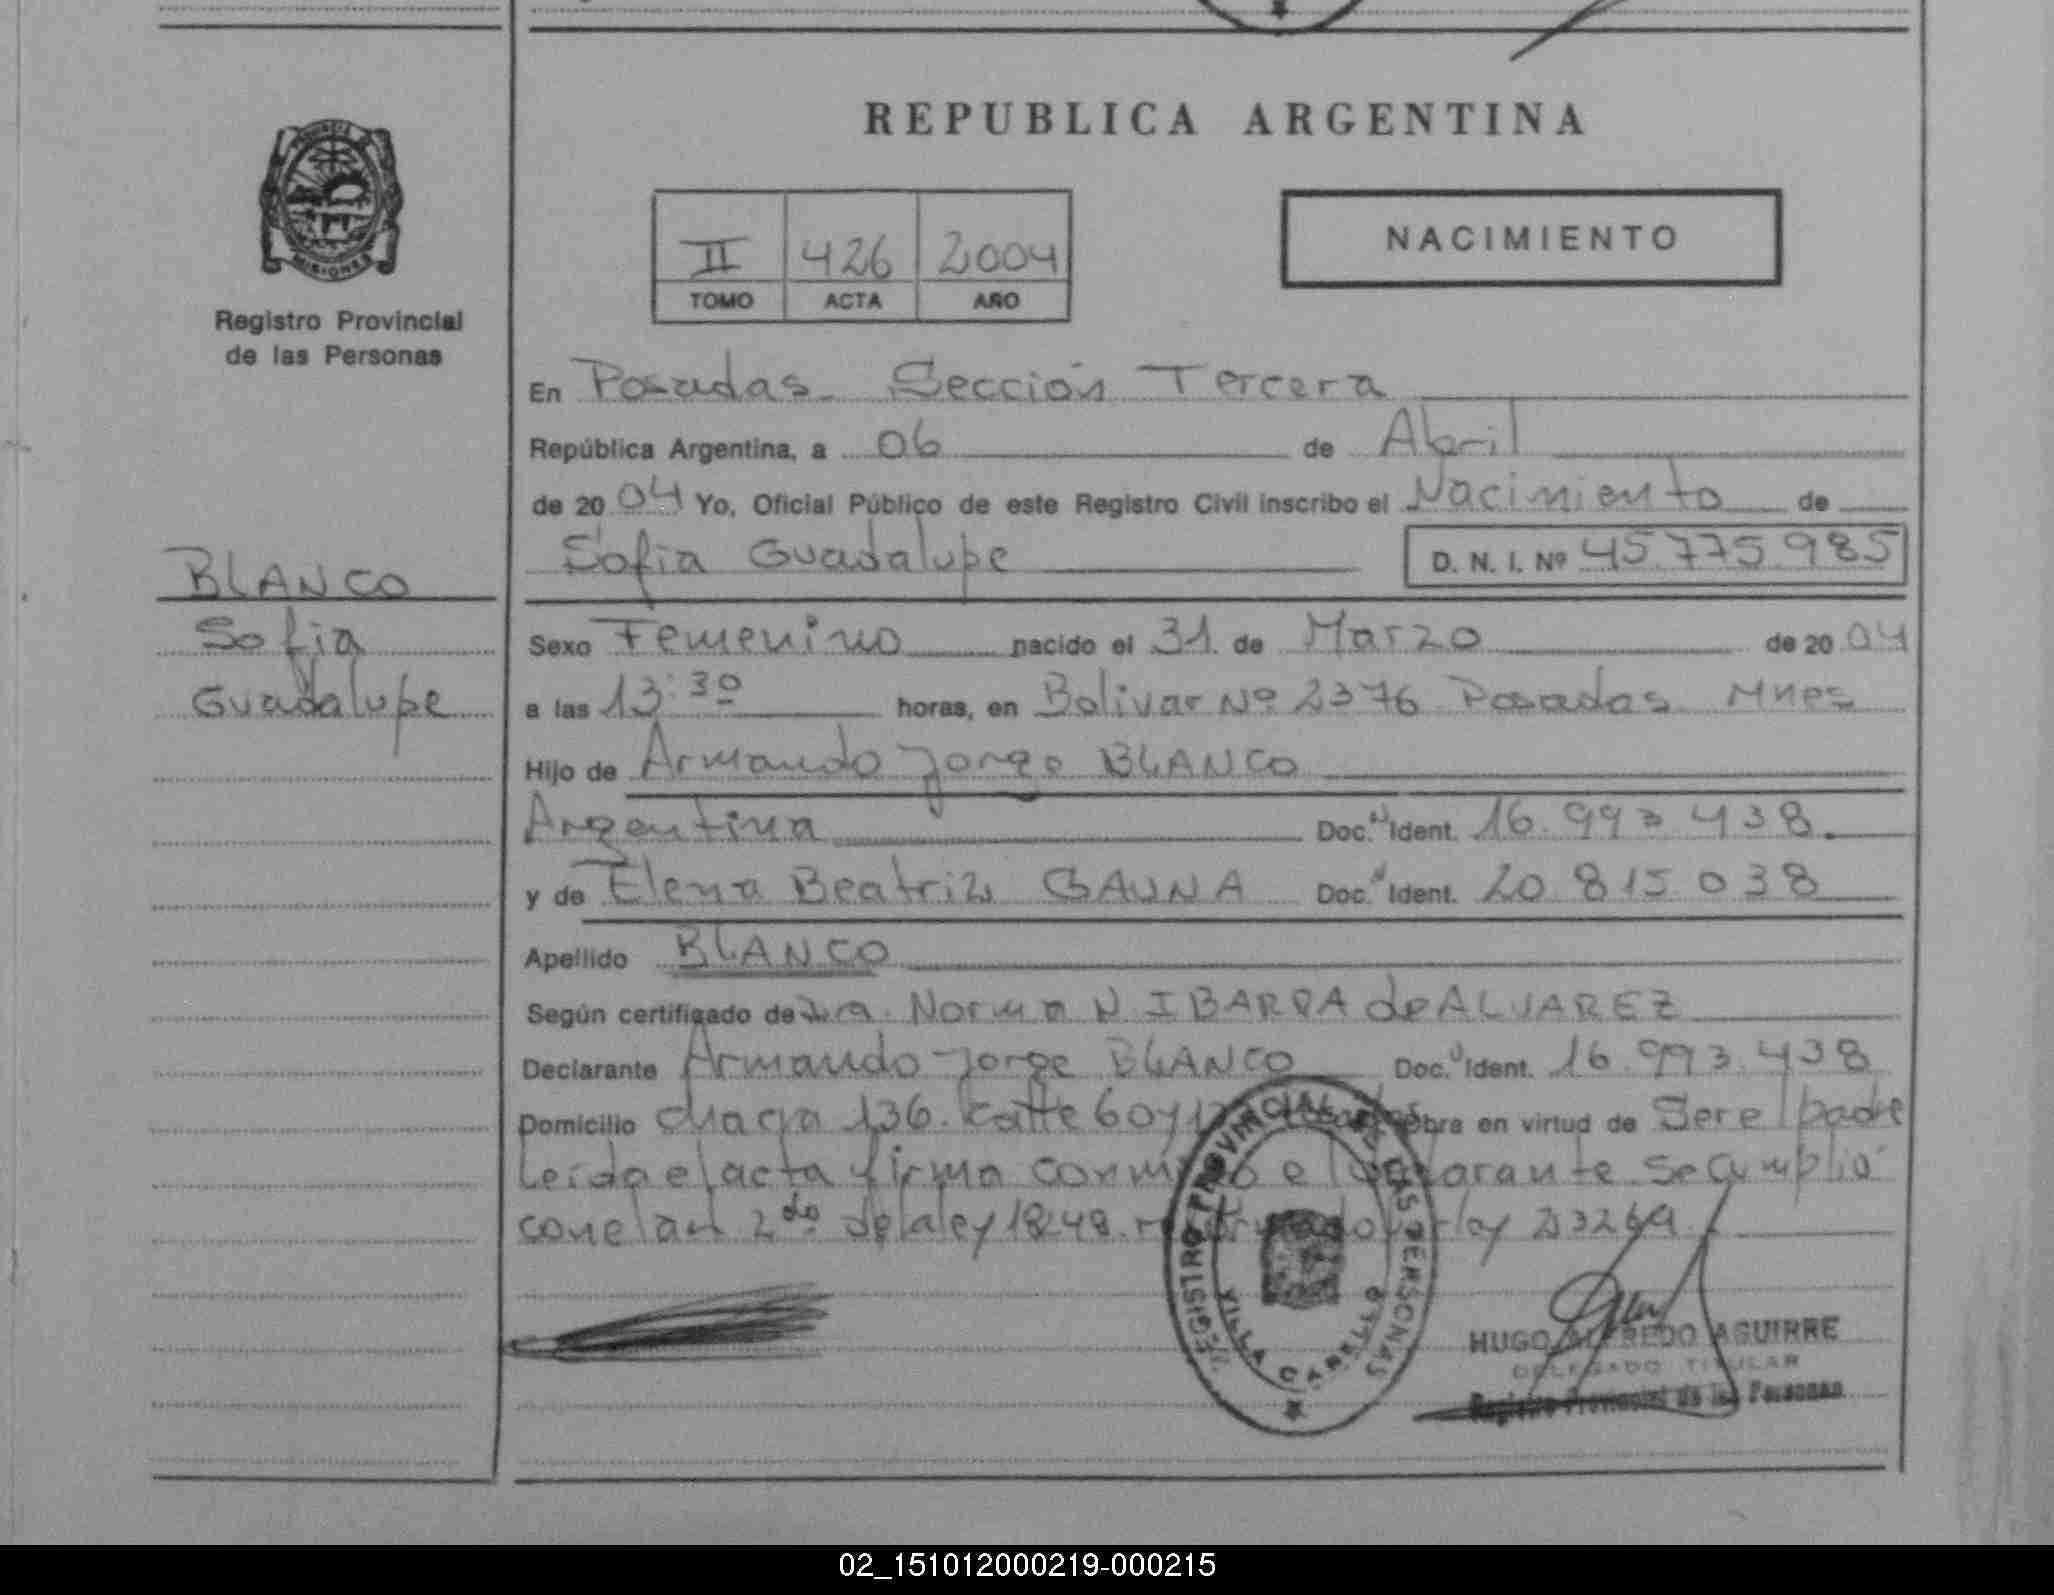 REPUBLICA ARGENTINA
PROVINCIA
MISIONES
Registro Provincial
de las Personas
II 426 2004
TOMO ACTA AÑO
NACIMIENTO
En Posadas Sección Tercera
República Argentina, a 06 de Abril
de 2004 Yo, Oficial Público de este Registro Civil inscribo el Nacimiento de
Sofia Guadalupe D. N. I. Nº 45.775.985
BLANCO
Sofia
Guadalupe
Sexo Femenino nacido el 31 de Marzo de 2004
a las 13:30 horas, en Bolivar Nº 2376 Posadas Mnes
Hijo de Armando Jorge BLANCO
Argentina Doc. Ident. 16.993.438
y de Elena Beatriz GAUNA Doc. Ident. 20.815.038
Apellido BLANCO
Según certificado de Dra. Norma N. IBARRA de ALVAREZ
Declarante Armando Jorge BLANCO Doc. Ident. 16.993.438
Domicilio chacra 136. Calle 60 y obra en virtud de Ser el padre
Leída el acta firma conmigo el declarante se cumplió
con el art 2do de la ley 18248. ley 23264
REGISTRO PROVINCIAL DE LAS PERSONAS
VILLA CABELLO
HUGO ALFREDO AGUIRRE
DELEGADO TITULAR
Registro Provincial de las Personas
02_151012000219-000215